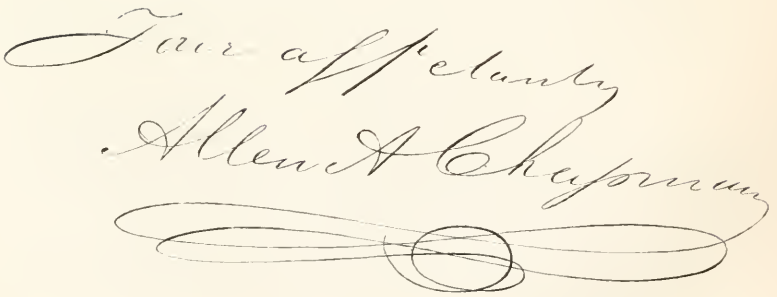 Your aff'ctionately
Allen A Chapman